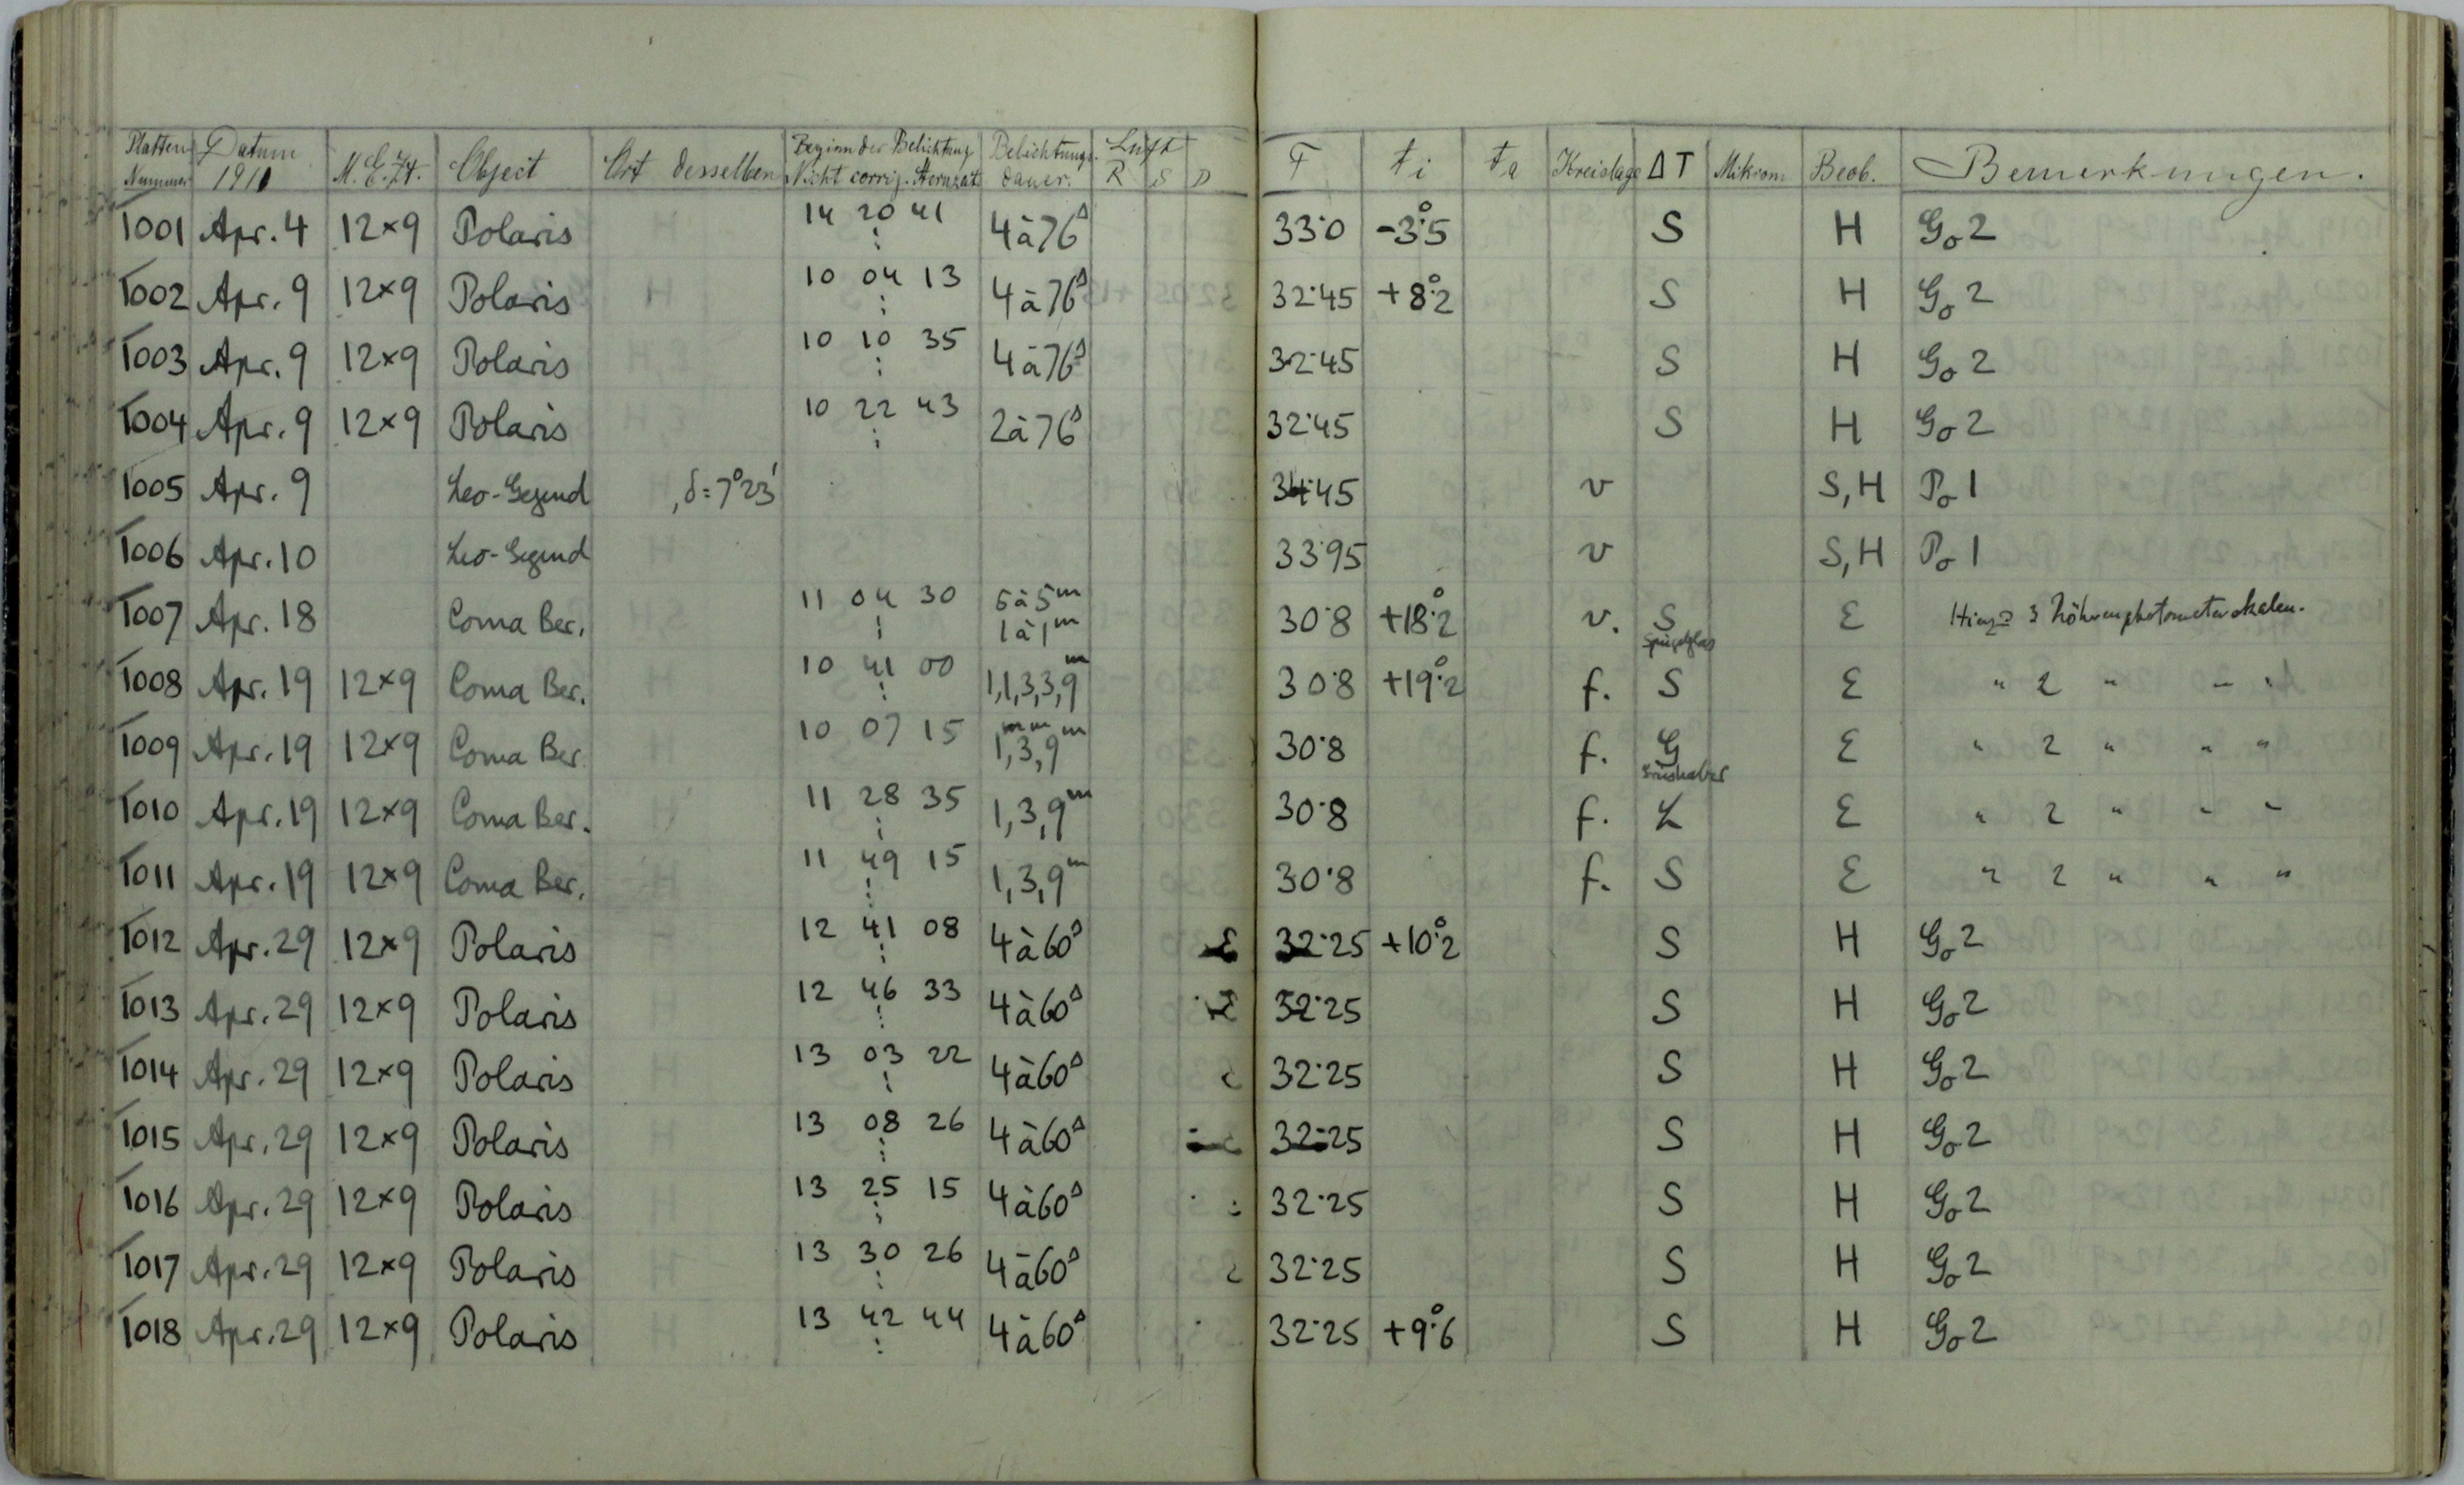 Platten Nummer Datum 1911 M.E.Zt. Object Ort desselben Beginn der Belichtung Nicht corrig. Sternzeit Belichtungs-dauer. Luft R S D F ti ta Kreislage ΔT Mikrom Beob. Bemerkungen.
1001 Apr. 4 12×9 Polaris 14 20 41 4 à 76s 33·0 -3°·5 S H Go 2
1002 Apr. 9 12×9 Polaris 10 04 13 4 à 76s 32·45 +8°·2 S H Go 2
1003 Apr. 9 12×9 Polaris 10 10 35 4 à 76s 32·45 S H Go 2
1004 Apr. 9 12×9 Polaris 10 22 43 2 à 76s 32·45 S H Go 2
1005 Apr. 9 Leo-Gegend , δ = 7°23' 34·45 v S, H Po 1
1006 Apr. 10 Leo-Gegend 33·95 v S, H Po 1
1007 Apr. 18 Coma Ber. 11 04 30 5 à 5m 1 à 1m 30·8 +18°·2 v. S Spiegelglas E 3 Röhrenphotometerskalen.
1008 Apr. 19 12×9 Coma Ber. 10 41 00 1,1,3,3,9m 30·8 +19°·2 f. S E " 2 " " "
1009 Apr. 19 12×9 Coma Ber. 10 07 15 1m,3m,9m 30·8 f. G E " 2 " " "
1010 Apr. 19 12×9 Coma Ber. 11 28 35 1,3,9m 30·8 f. L E " 2 " " "
1011 Apr. 19 12×9 Coma Ber. 11 49 15 1,3,9m 30·8 f. S E " 2 " " "
1012 Apr. 29 12×9 Polaris 12 41 08 4 à 60s 32·25 +10°·2 S H Go 2
1013 Apr. 29 12×9 Polaris 12 46 33 4 à 60s 32·25 S H Go 2
1014 Apr. 29 12×9 Polaris 13 03 22 4 à 60s 32·25 S H Go 2
1015 Apr. 29 12×9 Polaris 13 08 26 4 à 60s 32·25 S H Go 2
1016 Apr. 29 12×9 Polaris 13 25 15 4 à 60s 32·25 S H Go 2
1017 Apr. 29 12×9 Polaris 13 30 26 4 à 60s 32·25 S H Go 2
1018 Apr. 29 12×9 Polaris 13 42 44 4 à 60s 32·25 +9°·6 S H Go 2